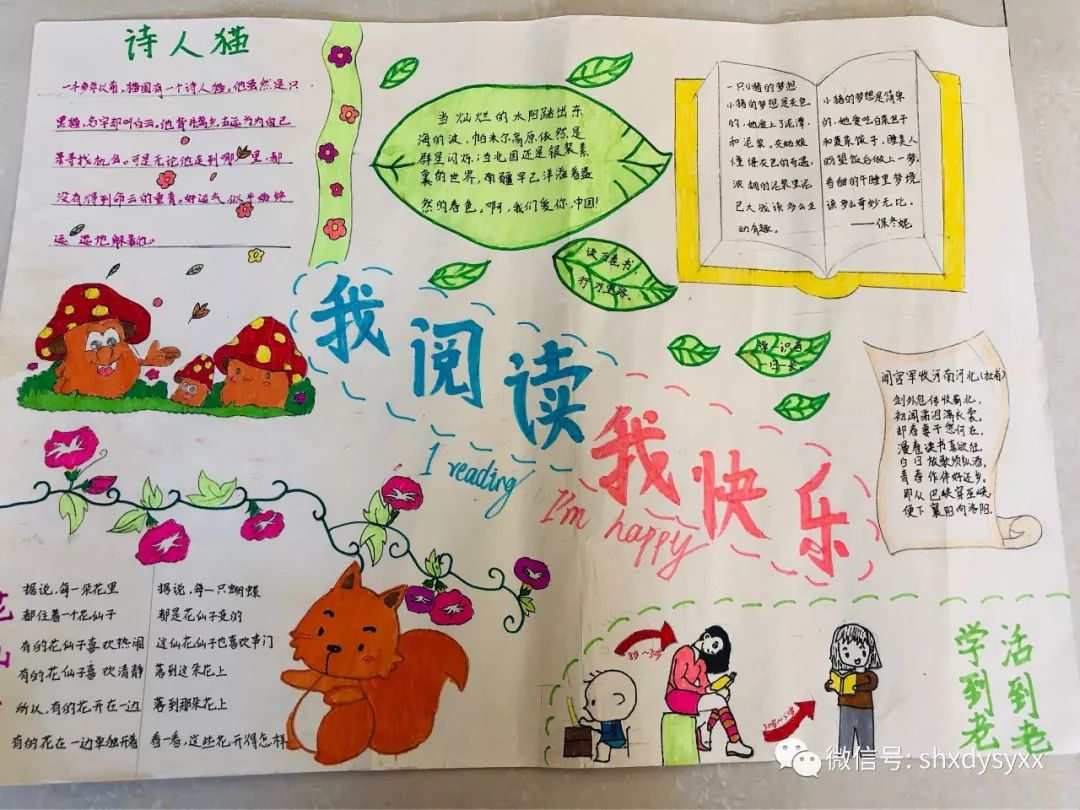 诗人猫
一千多年以前，猫国有一个诗人猫。他虽然是只
黑猫，名字却叫白云。他背井离乡，五远为为自己
寻找机会。可是无论他走到哪里，都
没有得到命云的垂青。好运气似乎始终
远远地躲着他。
当灿烂的太阳跳出东
海的波，帕米尔高原依然是
群星闪烁；当北国还是银装素
裹的世界，南疆早已洋溢着盎
然的春色。啊，我们爱你，中国！
读万卷书
行万里路。
一只小猪的梦想
小猪的梦想是灰色
的，他爱上了泥潭，
和泥浆，灰姑娘
懂得灰色的奇遇，
浓稠的泥浆里泥
巴大战该多么生
动有趣。
小猪的梦想是简单
的，他爱吃白菜包子
和夏菜饺子，睡美人
盼望饭后做上一梦，
香甜的午睡里梦境
该多么奇妙无比。
——保冬妮
我阅读
I reading
我快乐
I'm happy
闻官军收河南河北(杜甫)
剑外忽传收蓟北，
初闻涕泪满衣裳，
却看妻子愁何在，
漫卷诗书喜欲狂。
白日放歌须纵酒，
青春作伴好还乡。
即从巴峡穿巫峡，
便下襄阳向洛阳。
据说，每一朵花里
都住着一个花仙子
有的花仙子喜欢热闹
有的花仙子喜欢清静
所以，有的花开在一边
有的花在一边单独开着
据说，每一只蝴蝶
都是花仙子变的
这仙花仙子也喜欢串门
落到这朵花上
落到那朵花上
看一看，这些花开得怎样
活到老
学到老
微信号: shxdysyxx